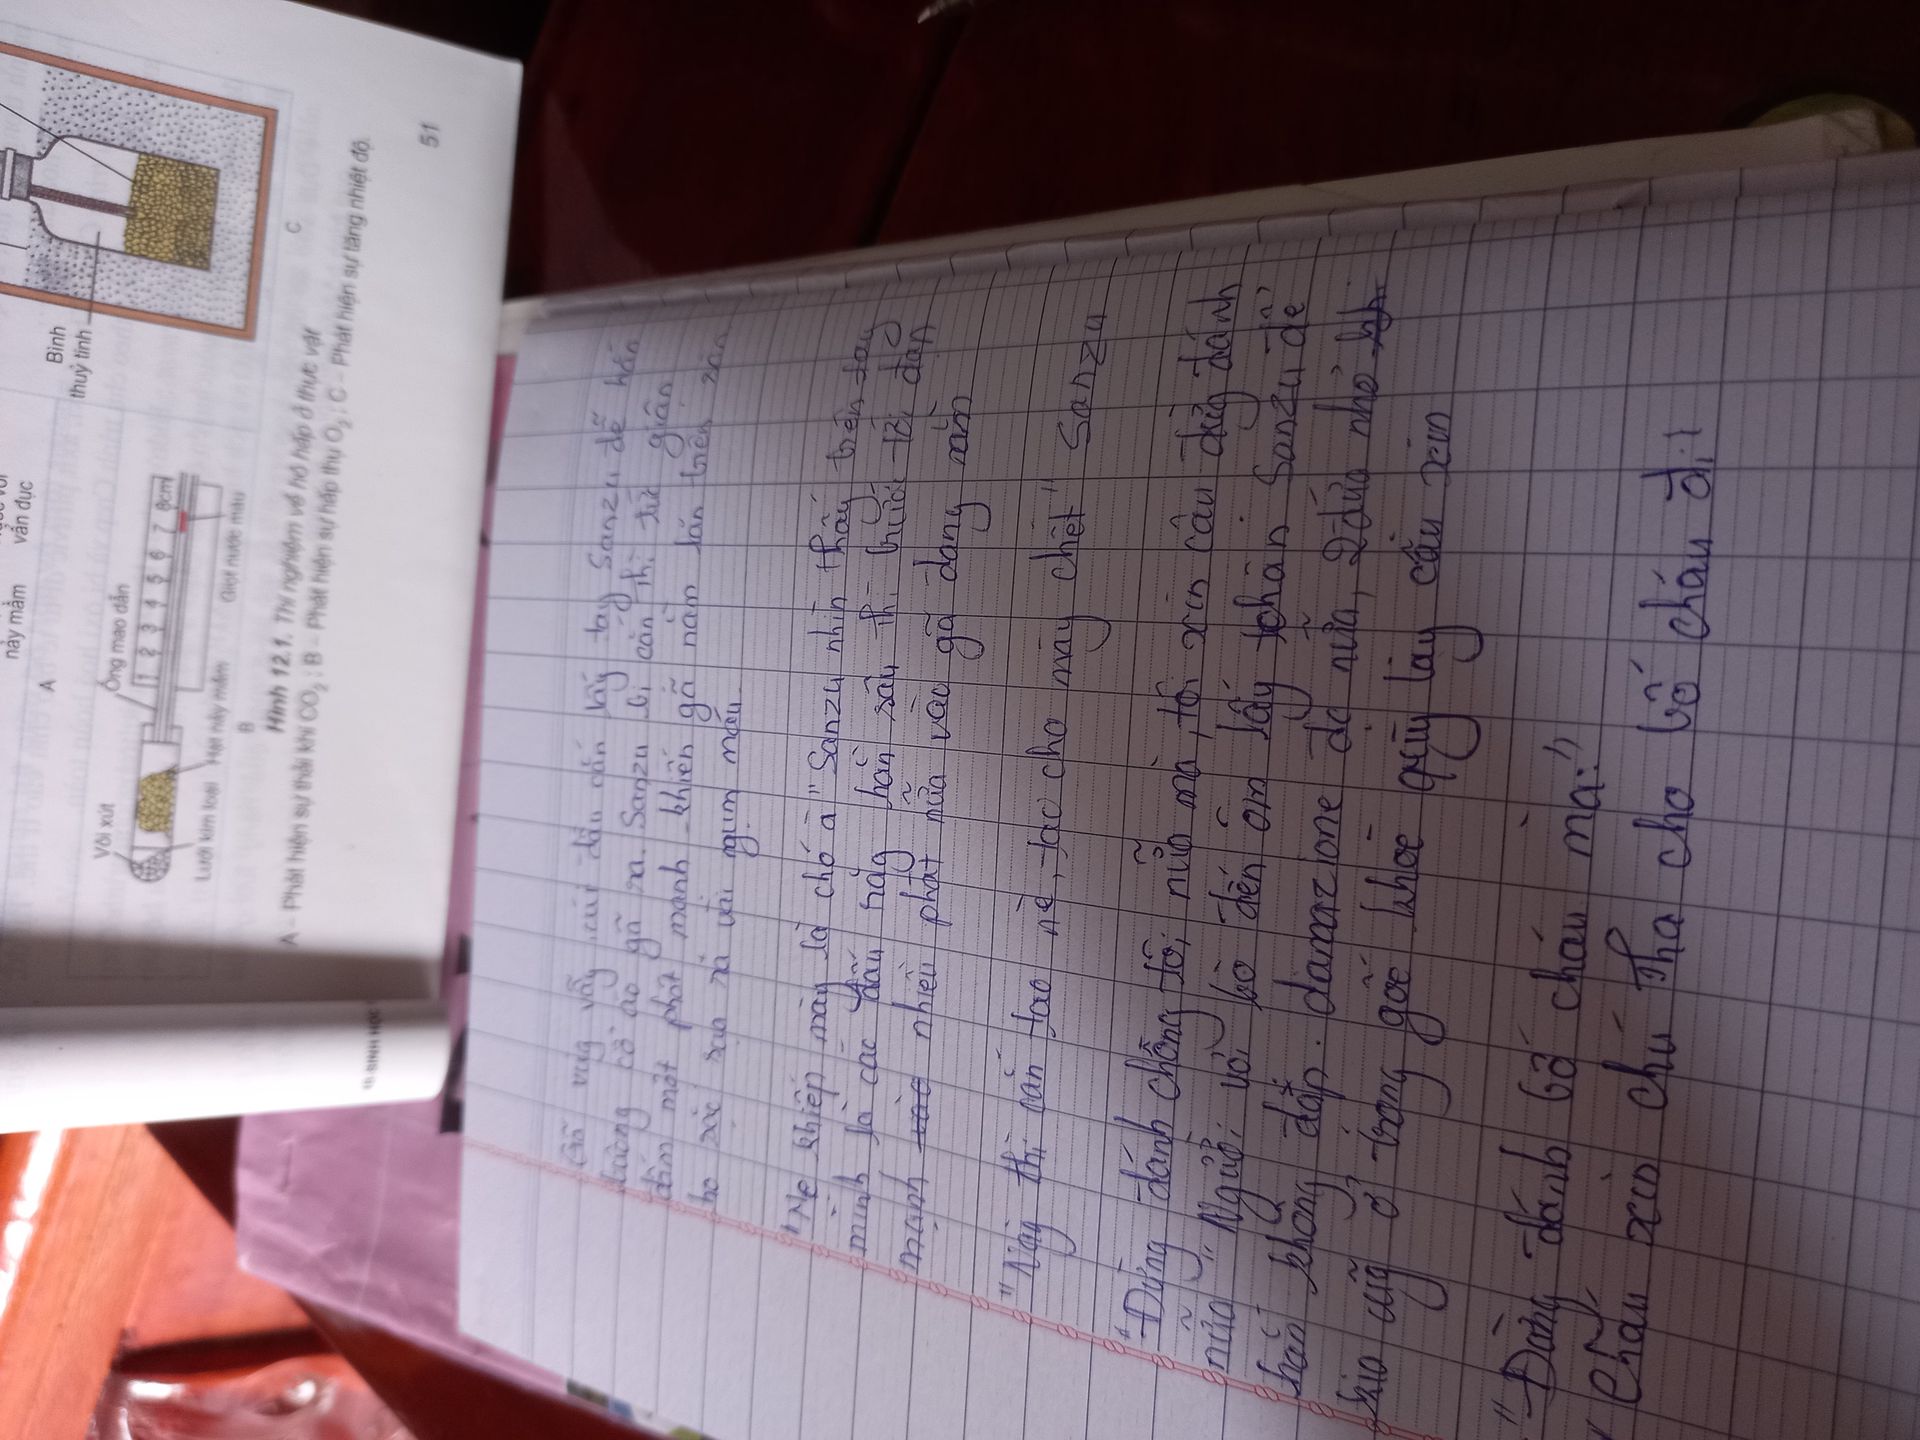 Bình
thuỷ tinh
C
nảy mầm
vẩn đục
A
Ống mao dẫn
1 2 3 4 5 6 7 8cm
Vôi xút
Lưới kim loại
Hạt nảy mầm
Giọt nước màu
B
Hình 12.1. Thí nghiệm về hô hấp ở thực vật
A - Phát hiện sự thải khí CO2 ; B - Phát hiện sự hấp thụ O2 ; C - Phát hiện sự tăng nhiệt độ.
51
SINH HỌC
Gã vùng vẫy, cúi đầu cắn lấy tay Sanzu để hắn
buông cổ áo gã ra. Sanzu bị cắn thì tức giận
đấm một phát mạnh khiến gã nằm lăn trên sàn
ho sặc sụa ra vài ngụm máu.
"Mẹ khiếp mày là chó à" Sanzu nhìn thấy trên tay
mình là các dấu răng hằn sâu thì bước tới đạp
mạnh vào nhiều phát nữa vào gã đang nằm
"Này thì cắn tao nè, tao cho mày chết" Sanzu
"Đừng đánh chồng tôi nữa mà, tôi xin cậu đừng đánh
nữa" Người vợ bò đến ôm lấy chân Sanzu để
hắn không đạp. damazione đó nữa, 2 đứa nhỏ
kia cũng ở trong góc khóc quỳ lạy cầu xin
"Đừng đánh bố cháu mà"
"Cháu xin chú tha cho bố cháu đi"